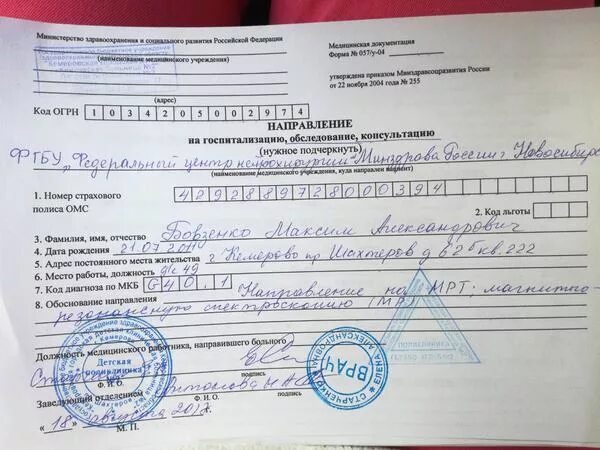 Министерство здравоохранения и социального развития Российской Федерации
Медицинская документация
Форма № 057/у-04
(наименование медицинского учреждения)
утверждена приказом Минздравсоцразвития России
от 22 ноября 2004 года № 255
(адрес)
Код ОГРН 1034205002974
НАПРАВЛЕНИЕ
на госпитализацию, обследование, консультацию
(нужное подчеркнуть)
ФГБУ „Федеральный центр нейрохирургии" Минздрава России г. Новосибирс
(наименование медицинского учреждения, куда направлен пациент)
1. Номер страхового полиса ОМС 4292889728000394
2. Код льготы
3. Фамилия, имя, отчество Бовзенко Максим Александрович
4. Дата рождения 21.07.2011
5. Адрес постоянного места жительства г Кемерово пр Шахтеров д 62 кв. 222
6. Место работы, должность д/с 49
7. Код диагноза по МКБ G40.1
8. Обоснование направления Направление на МРТ; магнитно-
резонансную спектроскопию (МР)
Должность медицинского работника, направившего больного
Ф.И.О. подпись
Заведующий отделением
Ф.И.О. подпись
« 18 » августа
М. П.
Детская
поликлиника
ВРАЧ
СТАРЧЕНКО ЕЛЕНА АЛЕКСАНДРОВНА
ПОЛИКЛИНИКА